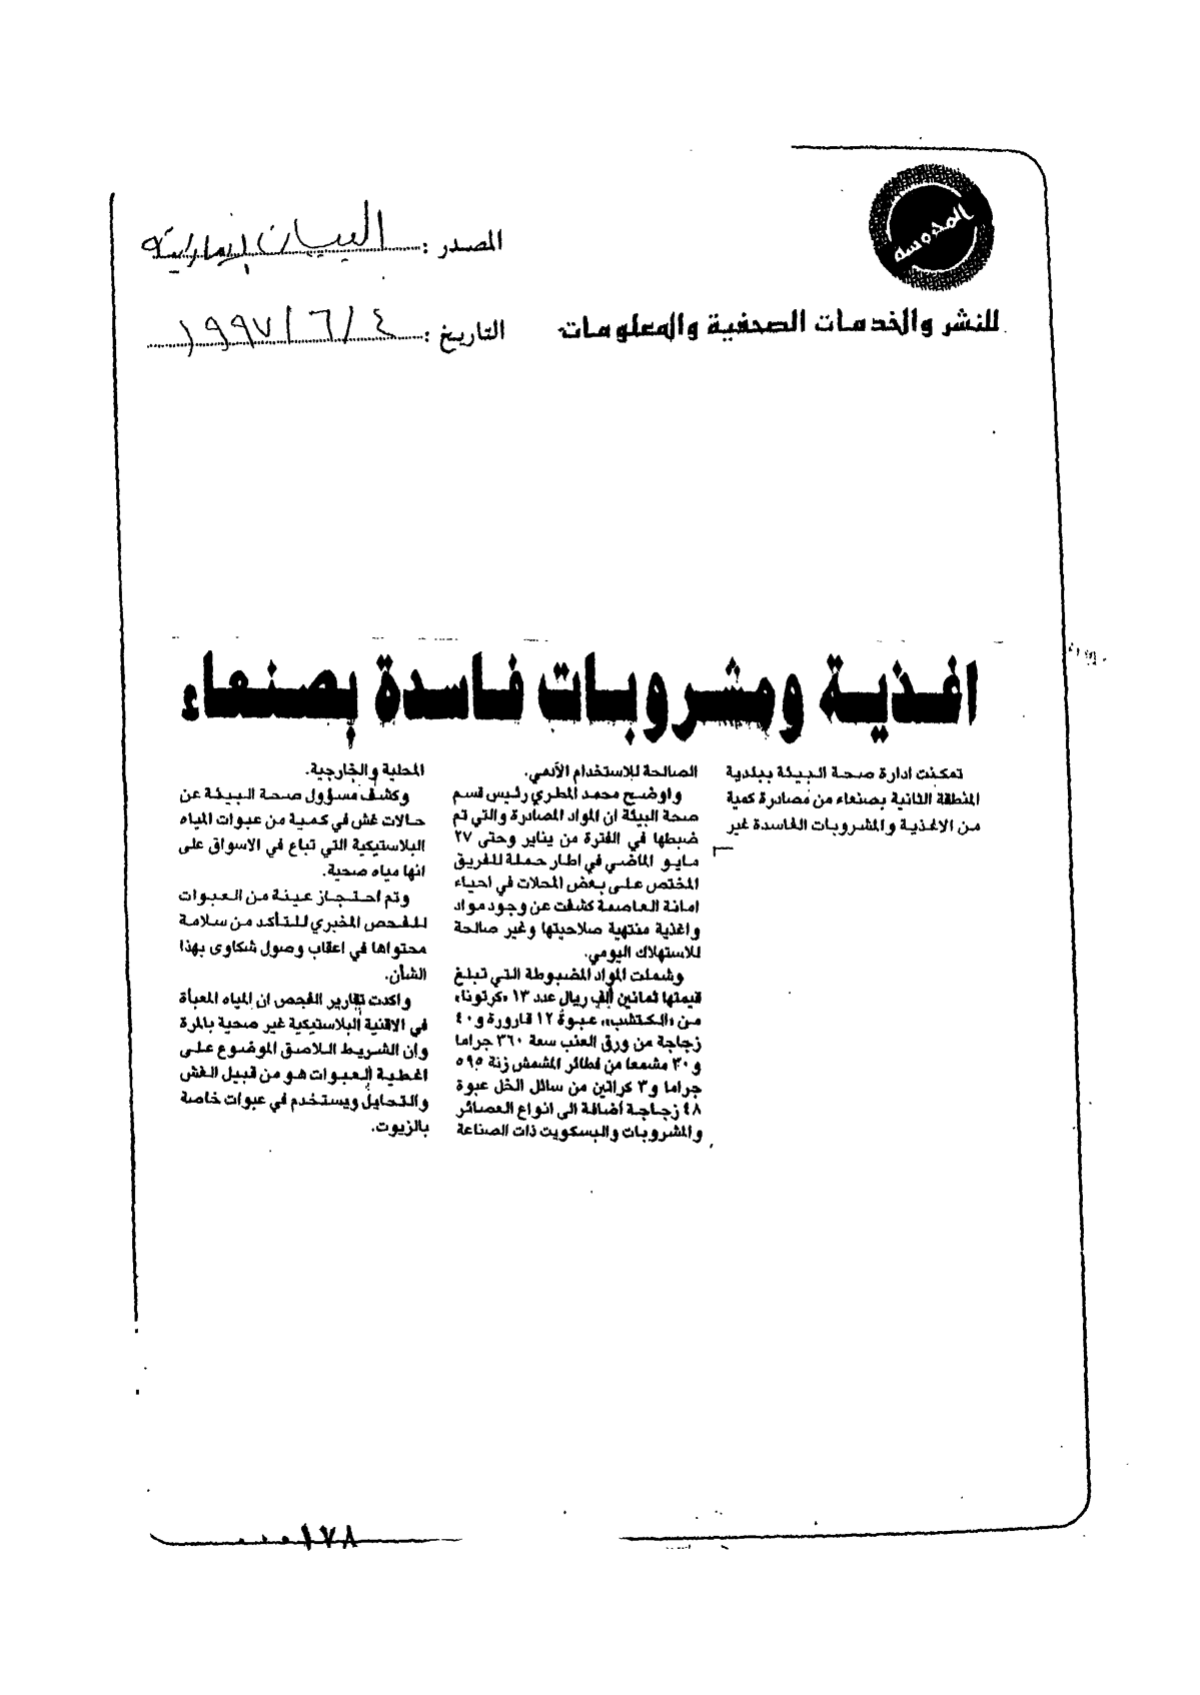 المحروسة
للنشر والخدمات الصحفية والمعلومات
المصدر : البيان الإماراتية
التاريخ : ٤ / ٦ / ١٩٩٧
اغذية ومشروبات فاسدة بصنعاء
تمكنت ادارة صحة البيئة ببلدية
المنطقة الثانية بصنعاء من مصادرة كمية
من الاغذية والمشروبات الفاسدة غير
الصالحة للاستخدام الآدمي.
واوضح محمد المطري رئيس قسم
صحة البيئة ان المواد المصادرة والتي تم
ضبطها في الفترة من يناير وحتى ٢٧
مايو الماضي في اطار حملة للفريق
المختص على بعض المحلات في احياء
امانة العاصمة كشفت عن وجود مواد
واغذية منتهية صلاحيتها وغير صالحة
للاستهلاك اليومي.
وشملت المواد المضبوطة التي تبلغ
قيمتها ثمانين ألف ريال عدد ١٣ «كرتونا»
من «الكتشب» عبوة ١٢ قارورة و٤٠
زجاجة من ورق العنب سعة ٣٦٠ جراما
و٣٠ مشمعا من فطائر المشمش زنة ٥٩٥
جراما و٣ كراتين من سائل الخل عبوة
٤٨ زجاجة اضافة الى انواع العصائر
والمشروبات والبسكويت ذات الصناعة
المحلية والخارجية.
وكشف مسؤول صحة البيئة عن
حالات غش في كمية من عبوات المياه
البلاستيكية التي تباع في الاسواق على
انها مياه صحية.
وتم احتجاز عينة من العبوات
للفحص المخبري للتأكد من سلامة
محتواها في اعقاب وصول شكاوى بهذا
الشأن.
واكدت تقارير الفحص ان المياه المعبأة
في الاقنية البلاستيكية غير صحية بالمرة
وان الشريط اللاصق الموضوع على
اغطية العبوات هو من قبيل الغش
والتحايل ويستخدم في عبوات خاصة
بالزيوت.
١٧٨